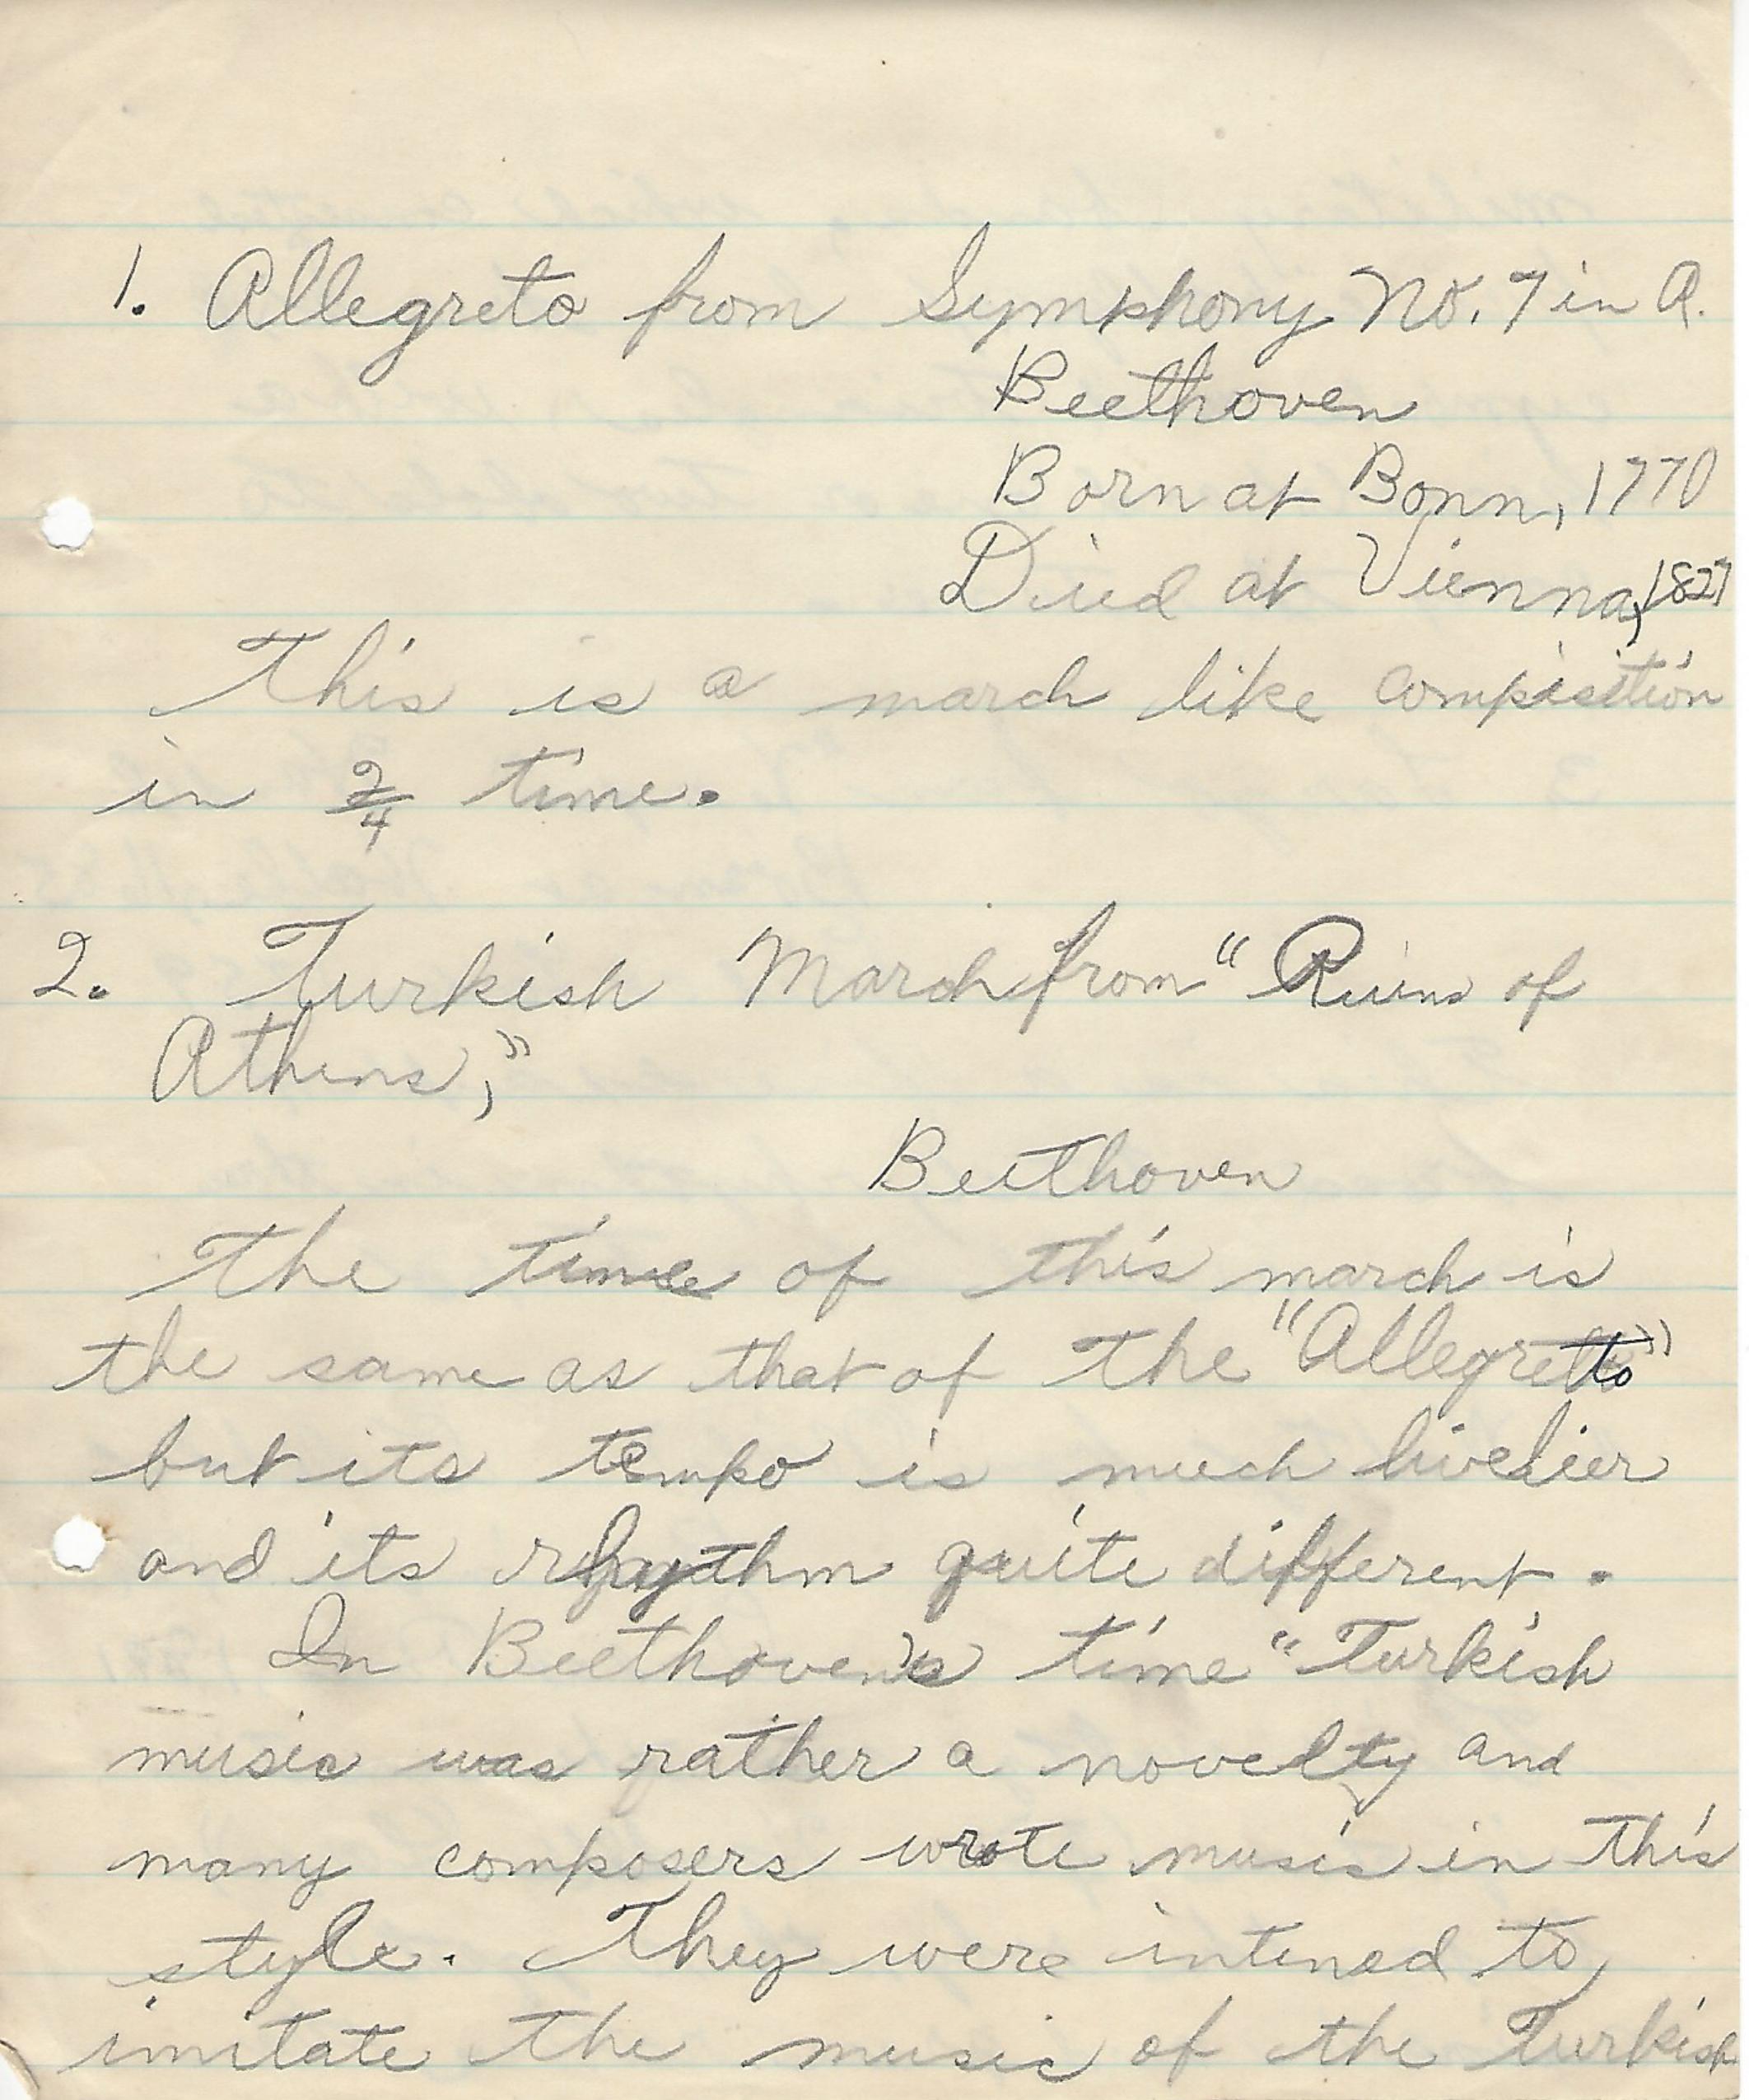 1. Allegreto from Symphony No. 7 in A.
Beethoven
Born at Bonn, 1770
Died at Vienna, 1827
This is a march like composition
in 2/4 time.
2. Turkish March from "Ruins of
Athens,"
Beethoven
The time of this march is
the same as that of the "Allegretto"
but its tempo is much livelier
and its rhythm quite different.
In Beethoven's time "Turkish
music was rather a novelty and
many composers wrote music in this
style. They were intened to
imitate the music of the Turkish